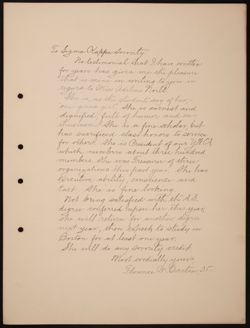 To Sigma Kappa Sorority
No testimonial that I have written
for years has given me the pleasure
that is mine in writing to you in
regard to Miss Adeline
She is, as the students say of her,
"one great girl". She is earnest and
dignified, full of humor, and
She is a fine scholar, but
has sacrificed class honors to service
for others. She is President of our Y.W.C.A.
which numbers about three hundred
members. She was Treasurer of three
organizations this past year. She has
executive ability, and
tact. She is fine looking.
Not being satisfied with the A.B.
degree conferred upon her this year,
she will return for another degree
next year, then expects to study in
Boston for at least one year.
She will do any sorority credit.
Most cordially yours,
Florence